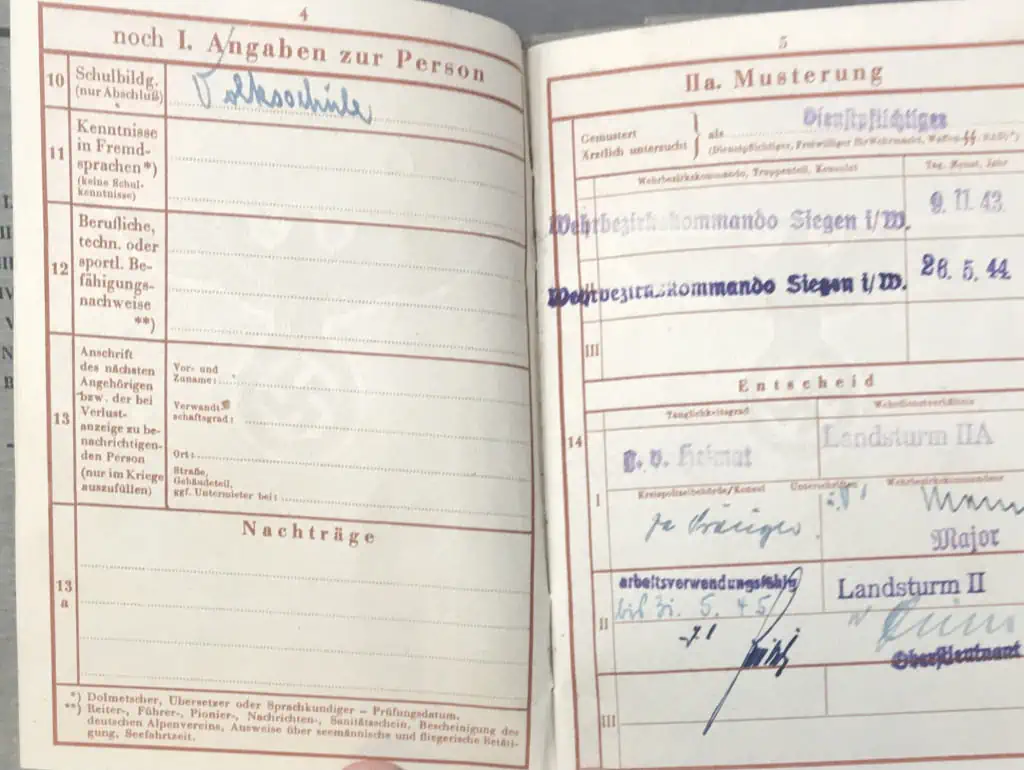 4
noch I. Angaben zur Person
10
Schulbildg.
(nur Abschluß)
Volksschule
11
Kenntnisse
in Fremd-
sprachen*)
(keine Schul-
kenntnisse)
12
Berufliche,
techn. oder
sportl. Be-
fähigungs-
nachweise
**)
13
Anschrift
des nächsten
Angehörigen
bzw. der bei
Verlust-
anzeige zu be-
nachrichtigen-
den Person
(nur im Kriege
auszufüllen)
Vor- und
Zuname:
Verwandt-
schaftsgrad:
Ort:
Straße,
Gebäudeteil,
ggf. Untermieter bei:
Nachträge
13
a
*) Dolmetscher, Übersetzer oder Sprachkundiger – Prüfungsdatum.
**) Reiter-, Führer-, Pionier-, Nachrichten-, Sanitätsschein, Bescheinigung des
deutschen Alpenvereins, Ausweise über seemännische und fliegerische Betäti-
gung, Seefahrtzeit.
5
IIa. Musterung
Gemustert
Ärztlich untersucht
als
Dienstpflichtiger
(Dienstpflichtiger, Freiwilliger für Wehrmacht, Waffen-SS, RAD)*)
Wehrbezirkskommando, Truppenteil, Konsulat
Tag, Monat, Jahr
Wehrbezirkskommando Siegen i/W.
9. 11. 43
Wehrbezirkskommando Siegen i/W.
26. 5. 44
III
Entscheid
14
Tauglichkeitsgrad
Wehrdienstverhältnis
g. v. Heimat
Landsturm IIA
I
Kreispolizeibehörde/Konsul
Unterschriften
Wehrbezirkskommandeur
Major
arbeitsverwendungsfähig
Landsturm II
II
bis 31. 5. 45
Oberstleutnant
III